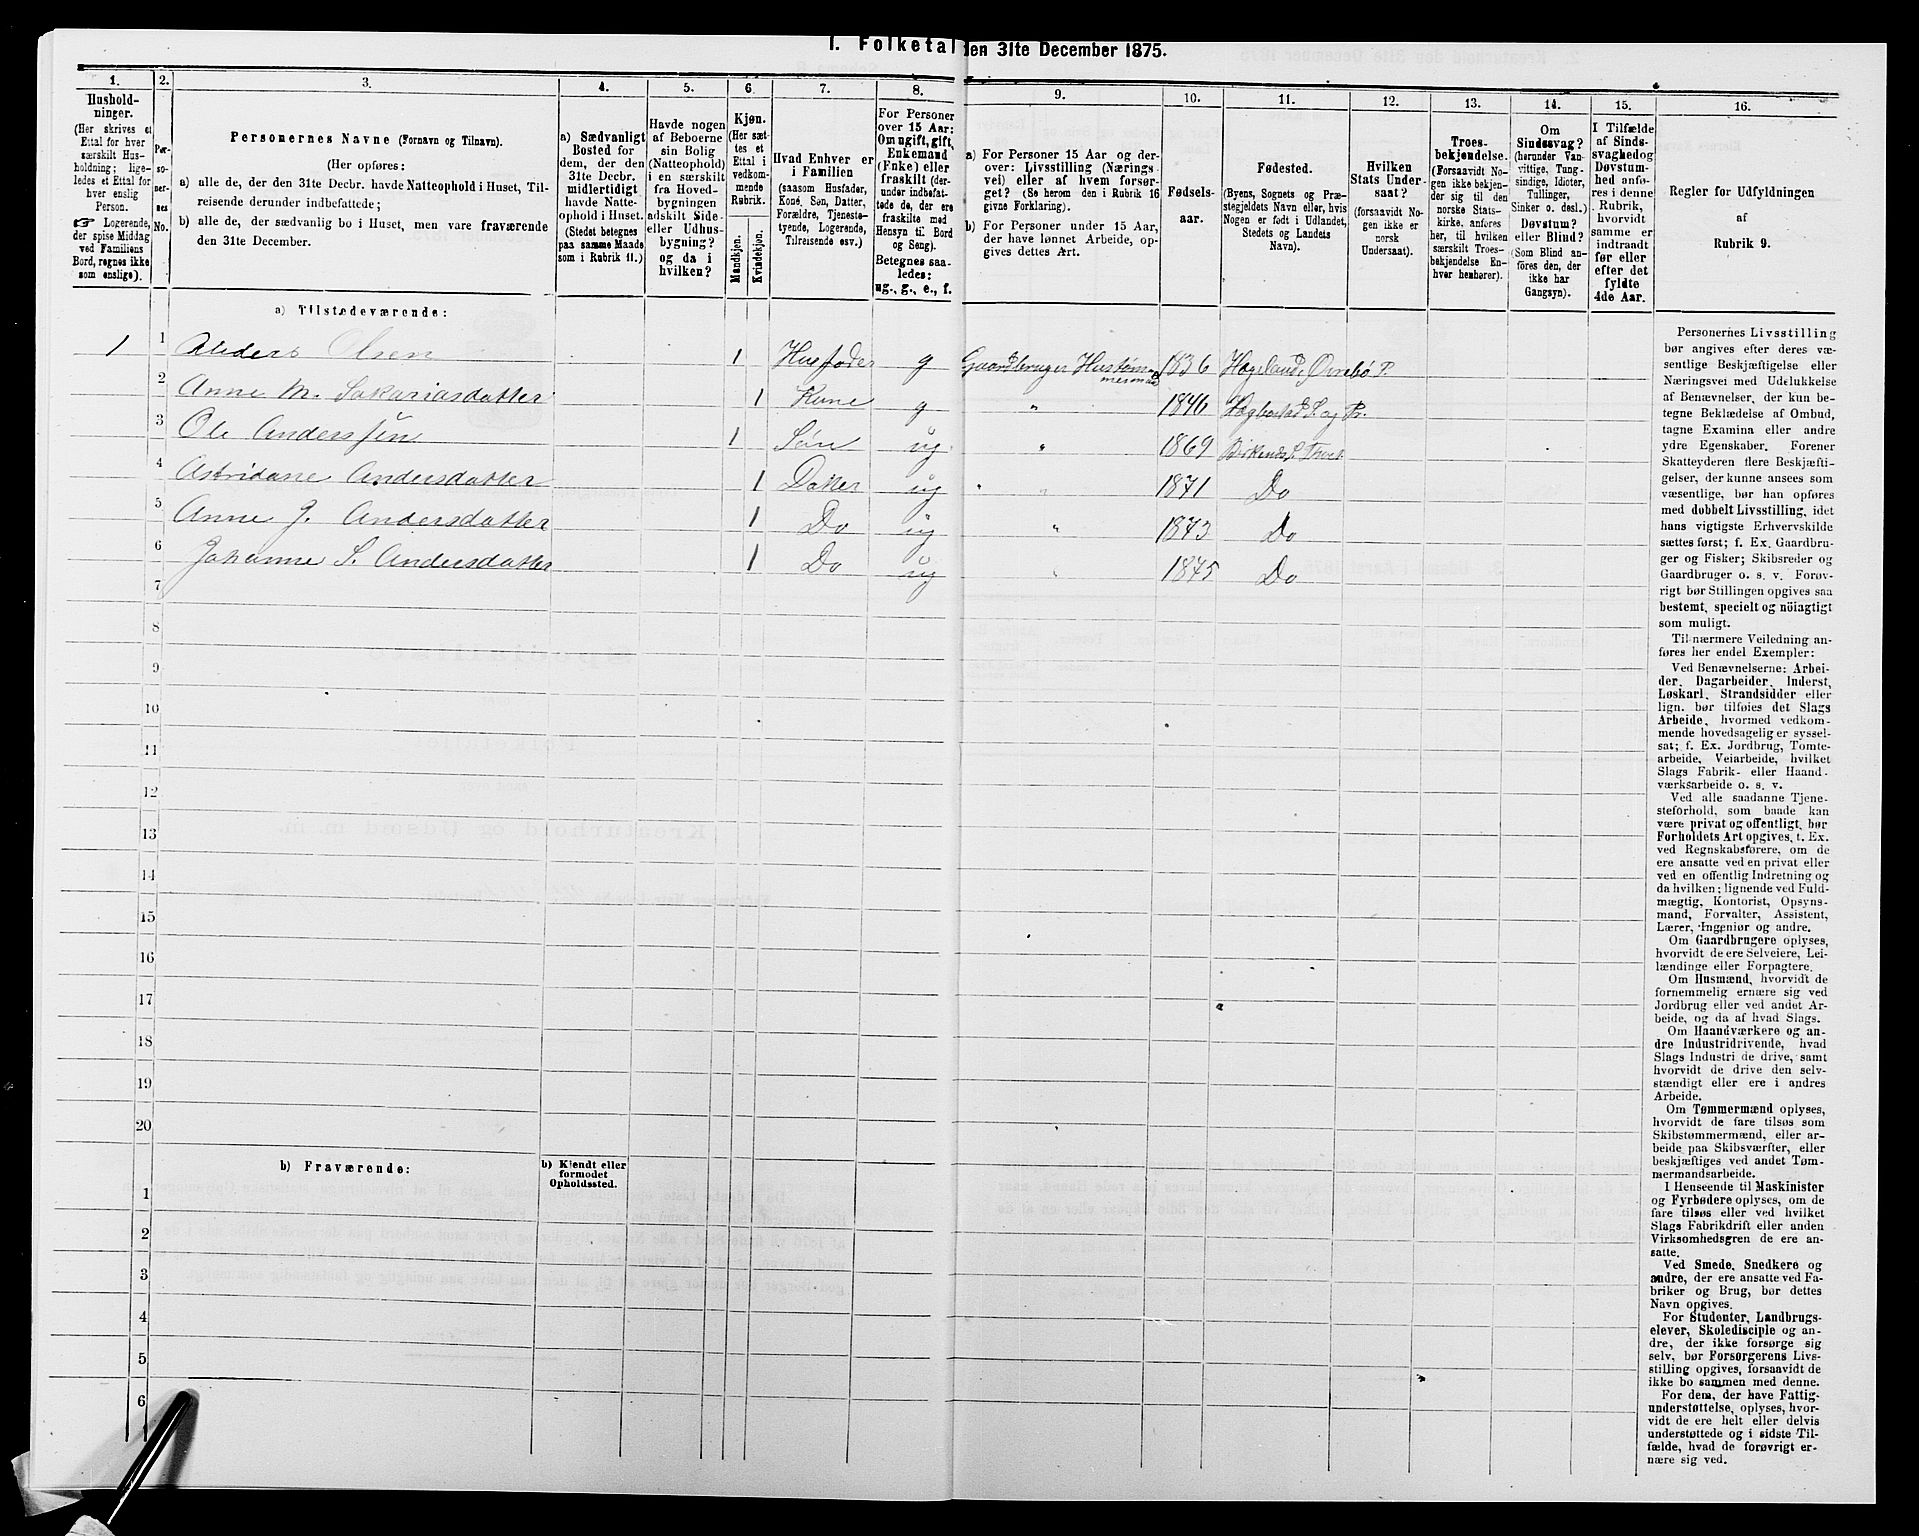 1. Folketal den 31te December 1875.
1.
2.
3.
4.
5.
6.
7.
8.
9.
10.
11.
12.
13.
14.
15.
16.
Hushold-
ninger.
(Her skrives et
Ettal for hver
særskilt Hus-
holdning; lige-
ledes et Ettal for
hver enslig
Person.
☞ Logerende,
der spise Middag
ved Familiens
Bord, regnes ikke
som enslige).
Per-
so-
ner-
nes
No.
Personernes Navne (Fornavn og Tilnavn).
(Her opføres:
a) alle de, der den 31te Decbr. havde Natteophold i Huset, Til-
reisende derunder indbefattede;
b) alle de, der sædvanlig bo i Huset, men vare fraværende
den 31te December.
a) Sædvanligt
Bosted for
dem, der den
31te Decbr.
midlertidigt
havde Natte-
ophold i Huset.
(Stedet betegnes
paa samme Maade
som i Rubrik 11.)
Havde nogen
af Beboerne
sin Bolig
(Natteophold)
i en særskilt
fra Hoved-
bygningen
adskilt Side-
eller Udhus-
bygning?
og da i
hvilken?
Kjøn.
(Her sæt-
tes et
Ettal i
vedkom-
mende
Rubrik.
Mandkjøn.
Kvindekjøn.
Hvad Enhver er
i Familien
(saasom Husfader,
Kone, Søn, Datter,
Forældre, Tjeneste-
tyende, Logerende,
Tilreisende osv.)
For Personer
over 15 Aar:
Om ugift, gift,
Enkemand
(Enke) eller
fraskilt (der-
under indbefat-
tede de, der ere
fraskilte med
Hensyn til Bord
og Seng).
Betegnes saa-
ledes:
ug., g., e., f.
a) For Personer 15 Aar og der-
over: Livsstilling (Nærings-
vei) eller af hvem forsør-
get? (Se herom den i Rubrik 16
givne Forklaring).
b) For Personer under 15 Aar,
der have lønnet Arbeide, op-
gives dettes Art.
Fødsels-
aar.
Fødested.
(Byens, Sognets og Præ-
stegjeldets Navn eller, hvis
Nogen er født i Udlandet,
Stedets og Landets
Navn).
Hvilken
Stats Under-
saat?
(forsaavidt No-
gen ikke er
norsk
Undersaat).
Troes-
bekjendelse.
(Forsaavidt No-
gen ikke bekjen-
der sig til den
norske Stats-
kirke, anføres
her, til hvilken
særskilt Troes-
bekjendelse En-
hver henhører).
Om
Sindssvag?
(herunder Van-
vittige, Tung-
sindige, Idioter,
Tullinger,
Sinker o. desl.)
Døvstum?
eller Blind?
(Som Blind an-
føres den, der
ikke har
Gangsyn).
I Tilfælde
af Sinds-
svaghed og
Døvstum-
hed anfø-
res i denne
Rubrik,
hvorvidt
samme er
indtraadt
før eller
efter det
fyldte
4de Aar.
Regler for Udfyldningen
af
Rubrik 9.
a) Tilstedeværende:
1 1 Anders Olsen 1 Husfader g Gaardbruger Hustøm-
mermand 1836 Hægelands, Øvrebø P.
2 Anne M. Sakariasdatter 1 Kone g " 1846 Hægbostad S. og Pr.
3 Ole Anderssen 1 Søn ug " 1869
4 Astridane Andersdatter 1 Datter ug " " 1871 Do
5 Anne J. Andersdatter 1 Do ug " 1873 Do
6 Johanne S. Andersdatter 1 Do ug " 1875 Do
7
8
9
10
11
12
13
14
15
16
17
18
19
20
b) Fraværende:
b) Kjendt eller
formodet
Opholdssted.
1
2
3
4
5
6
Personernes Livsstilling
bør angives efter deres væ-
sentlige Beskjæftigelse eller
Næringsvei med Udelukkelse
af Benævnelser, der kun be-
tegne Beklædelse af Ombud,
tagne Examina eller andre
ydre Egenskaber. Forener
Skatteyderen flere Beskjæfti-
gelser, der kunne ansees som
væsentlige, bør han opføres
med dobbelt Livsstilling, idet
hans vigtigste Erhvervskilde
sættes først; f. Ex. Gaardbru-
ger og Fisker; Skibsreder og
Gaardbruger o. s. v. Forøv-
rigt bør Stillingen opgives saa
bestemt, specielt og nöiagtigt
som muligt.
Til nærmere Veiledning an-
føres her endel Exempler:
Ved Benævnelserne: Arbei-
der, Dagarbeider, Inderst,
Løskarl, Strandsidder eller
lign. bør tilføies det Slags
Arbeide, hvormed vedkom-
mende hovedsagelig er syssel-
sat; f. Ex. Jordbrug, Tomte-
arbeide, Veiarbeide, hvilket
Slags Fabrik- eller Haand-
værksarbeide o. s. v.
Ved alle saadanne Tjene-
steforhold, som baade kan
være privat og offentligt, bør
Forholdets Art opgives, t. Ex.
ved Regnskabsførere, om de
ere ansatte ved en privat eller
ved en offentlig Indretning og
da hvilken; lignende ved Fuld-
mægtig, Kontorist, Opsyns-
mand, Forvalter, Assistent,
Lærer, Ingeniør og andre.
Om Gaardbrugere oplyses,
hvorvidt de ere Selveiere, Lei-
lændinge eller Forpagtere.
Om Husmænd, hvorvidt de
fornemmelig ernære sig ved
Jordbrug eller ved andet Ar-
beide, og da af hvad Slags.
Om Haandværkere og an-
dre Industridrivende, hvad
Slags Industri de drive, samt
hvorvidt de drive den selv-
stændigt eller ere i andres
Arbeide.
Om Tømmermænd oplyses,
hvorvidt de fare tilsøs som
Skibstømmermænd, eller ar-
beide paa Skibsværfter, eller
beskjæftiges ved andet Tøm-
mermandsarbeide.
I Henseende til Maskinister
og Fyrbødere oplyses, om de
fare tilsøs eller ved hvilket
Slags Fabrikdrift eller anden
Virksomhedsgren de ere an-
satte.
Ved Smede, Snedkere og
andre, der ere ansatte ved Fa-
briker og Brug, bør dettes
Navn opgives.
For Studenter, Landbrugs-
elever, Skoledisciple og an-
dre, der ikke forsørge sig
selv, bør Forsørgerens Livs-
stilling opgives, forsaavidt de
ikke bo sammen med denne.
For dem, der have Fattig-
understøttelse, oplyses, hvor-
vidt de ere helt eller delvis
understøttede og i sidste Til-
fælde, hvad de forøvrigt er-
nære sig ved.